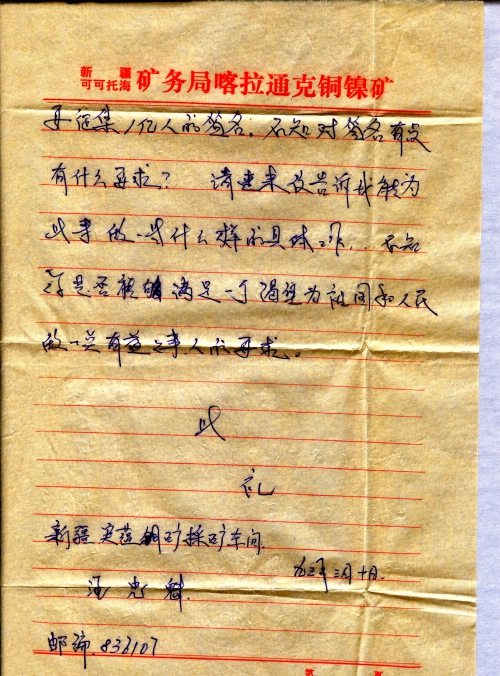 新疆
可可托海 矿务局喀拉通克铜镍矿
要征集1亿人的签名。不知对签名有没
有什么要求？ 请速来信告诉我能为
此事做一些什么样的具体工作，不知
是否能够满足一个渴望为祖国和人民
做一点有益之事人的要求。
此
礼
新疆 铜矿採矿车间.
九三年三月十日.
汪忠魁.
邮编.836107
第 页